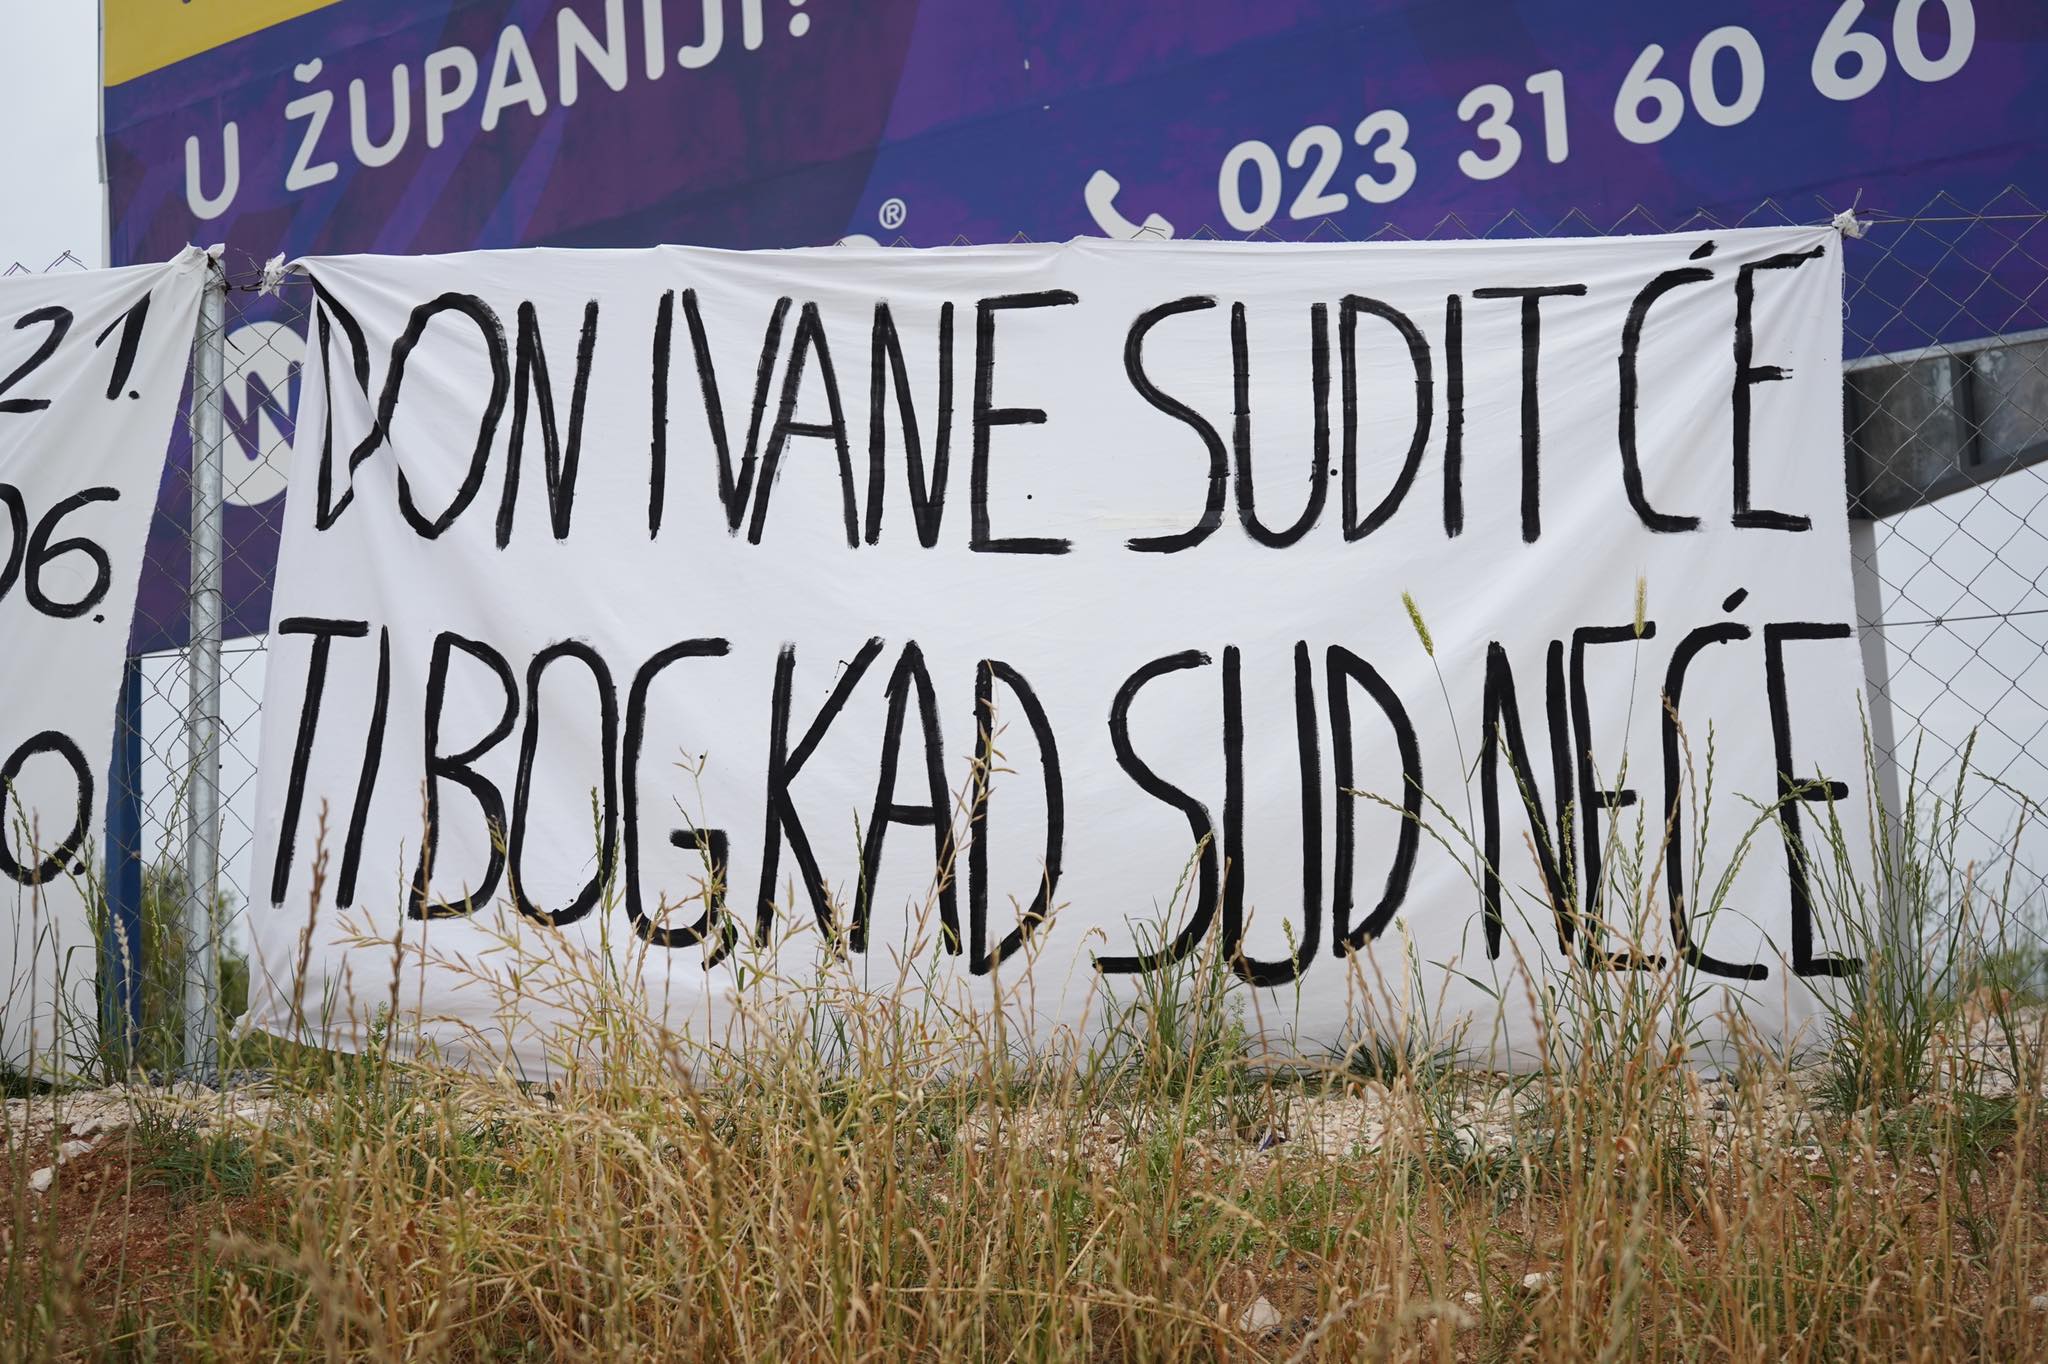 U ŽUPANIJI!
023 31 60 60
®
21.
06.
DON IVANE SUDIT ĆE
TI BOG, KAD SUD NEĆE